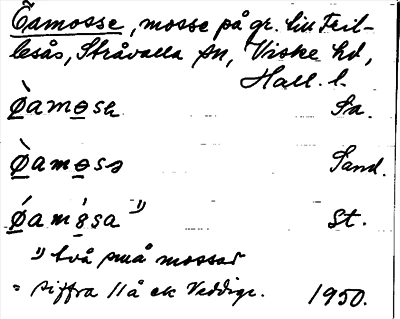 Öamosse, mosse på gr. till Fril-
lesås, Stråvalla sn, Viske hd,
Hall. l.
Ò̲amo̲sɛ Sa.
Ò̲amo̲ss Sand.
Ó̲amò̲sa ¹⁾ St.
¹⁾ två små mossar
= siffra 11 å ek Veddige. 1950.